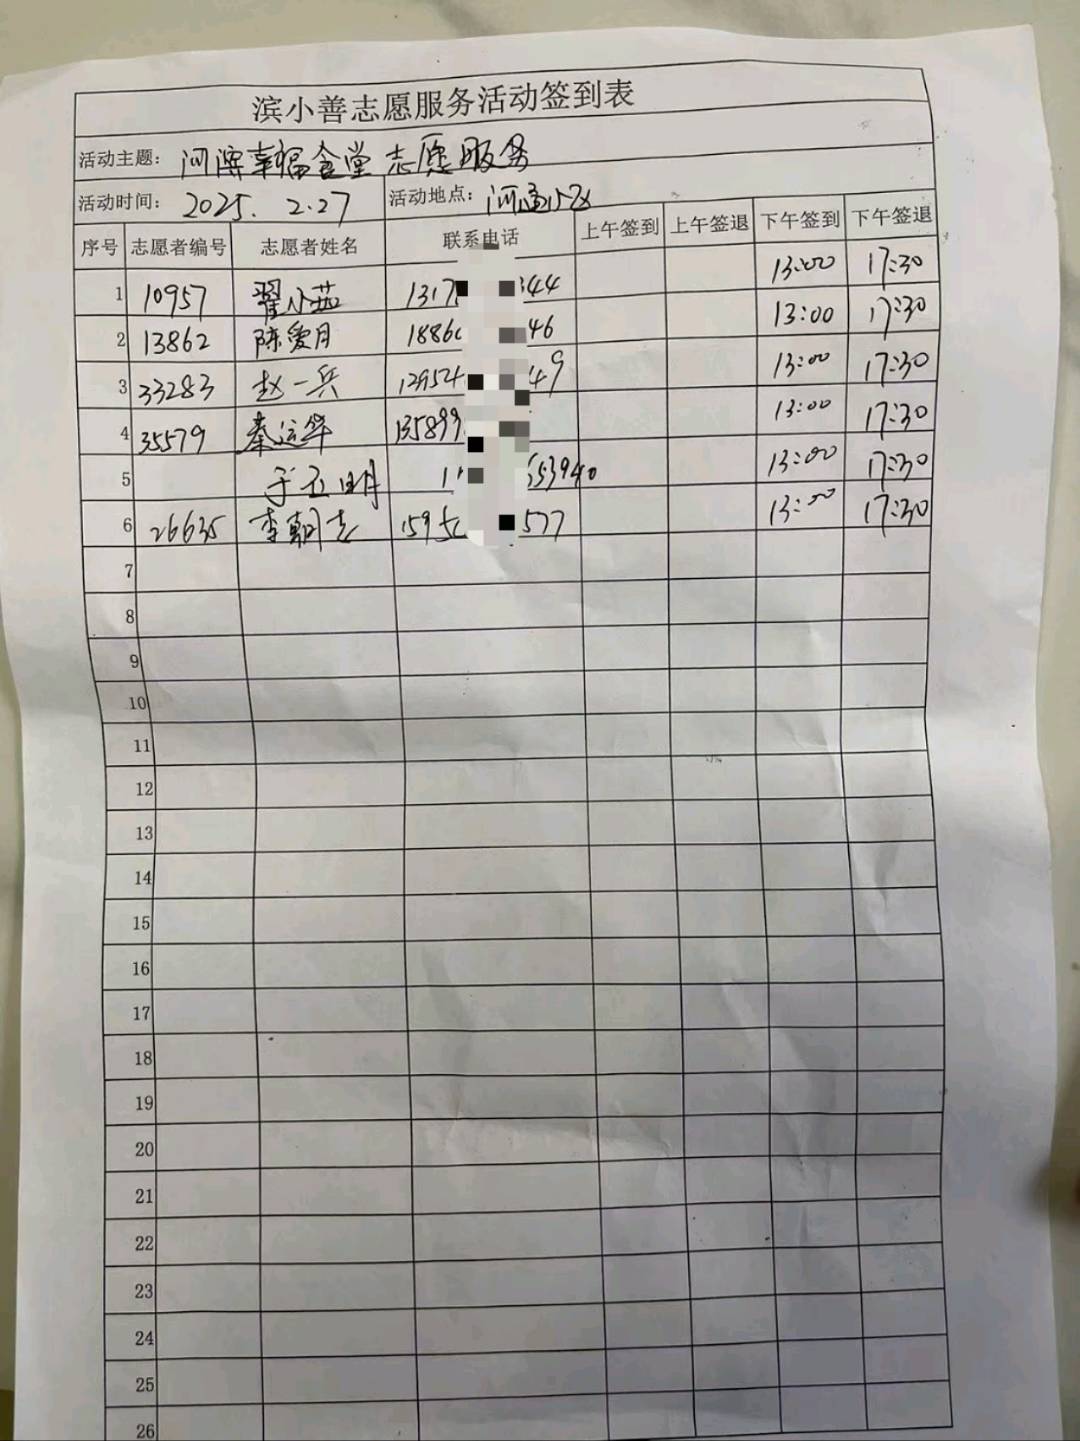 滨小善志愿服务活动签到表
活动主题： 河滨幸福食堂志愿服务
活动时间： 2025. 2.27 活动地点： 河滨小区
序号 志愿者编号 志愿者姓名 联系电话 上午签到 上午签退 下午签到 下午签退
1 10957 翟小茹 1317 44 13:00 17:30
2 13862 陈爱月 1886 46 13:00 17:30
3 33283 赵一兵 49 13:00 17:30
4 35579 秦运华 135899 13:00 17:30
5 于 明 53940 13:00 17:30
6 26635 李朝志 595 577 13:00 17:30
7
8
9
10
11
12
13
14
15
16
17
18
19
20
21
22
23
24
25
26